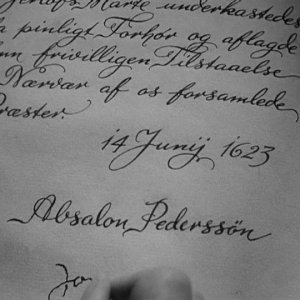 Marte underkastedes
pinligt Forhør og aflagde
frivilligen Tilstaaelse
Nærvær af os forsamlede
Præster.
14 Junij 1623
Absalon Pederssön